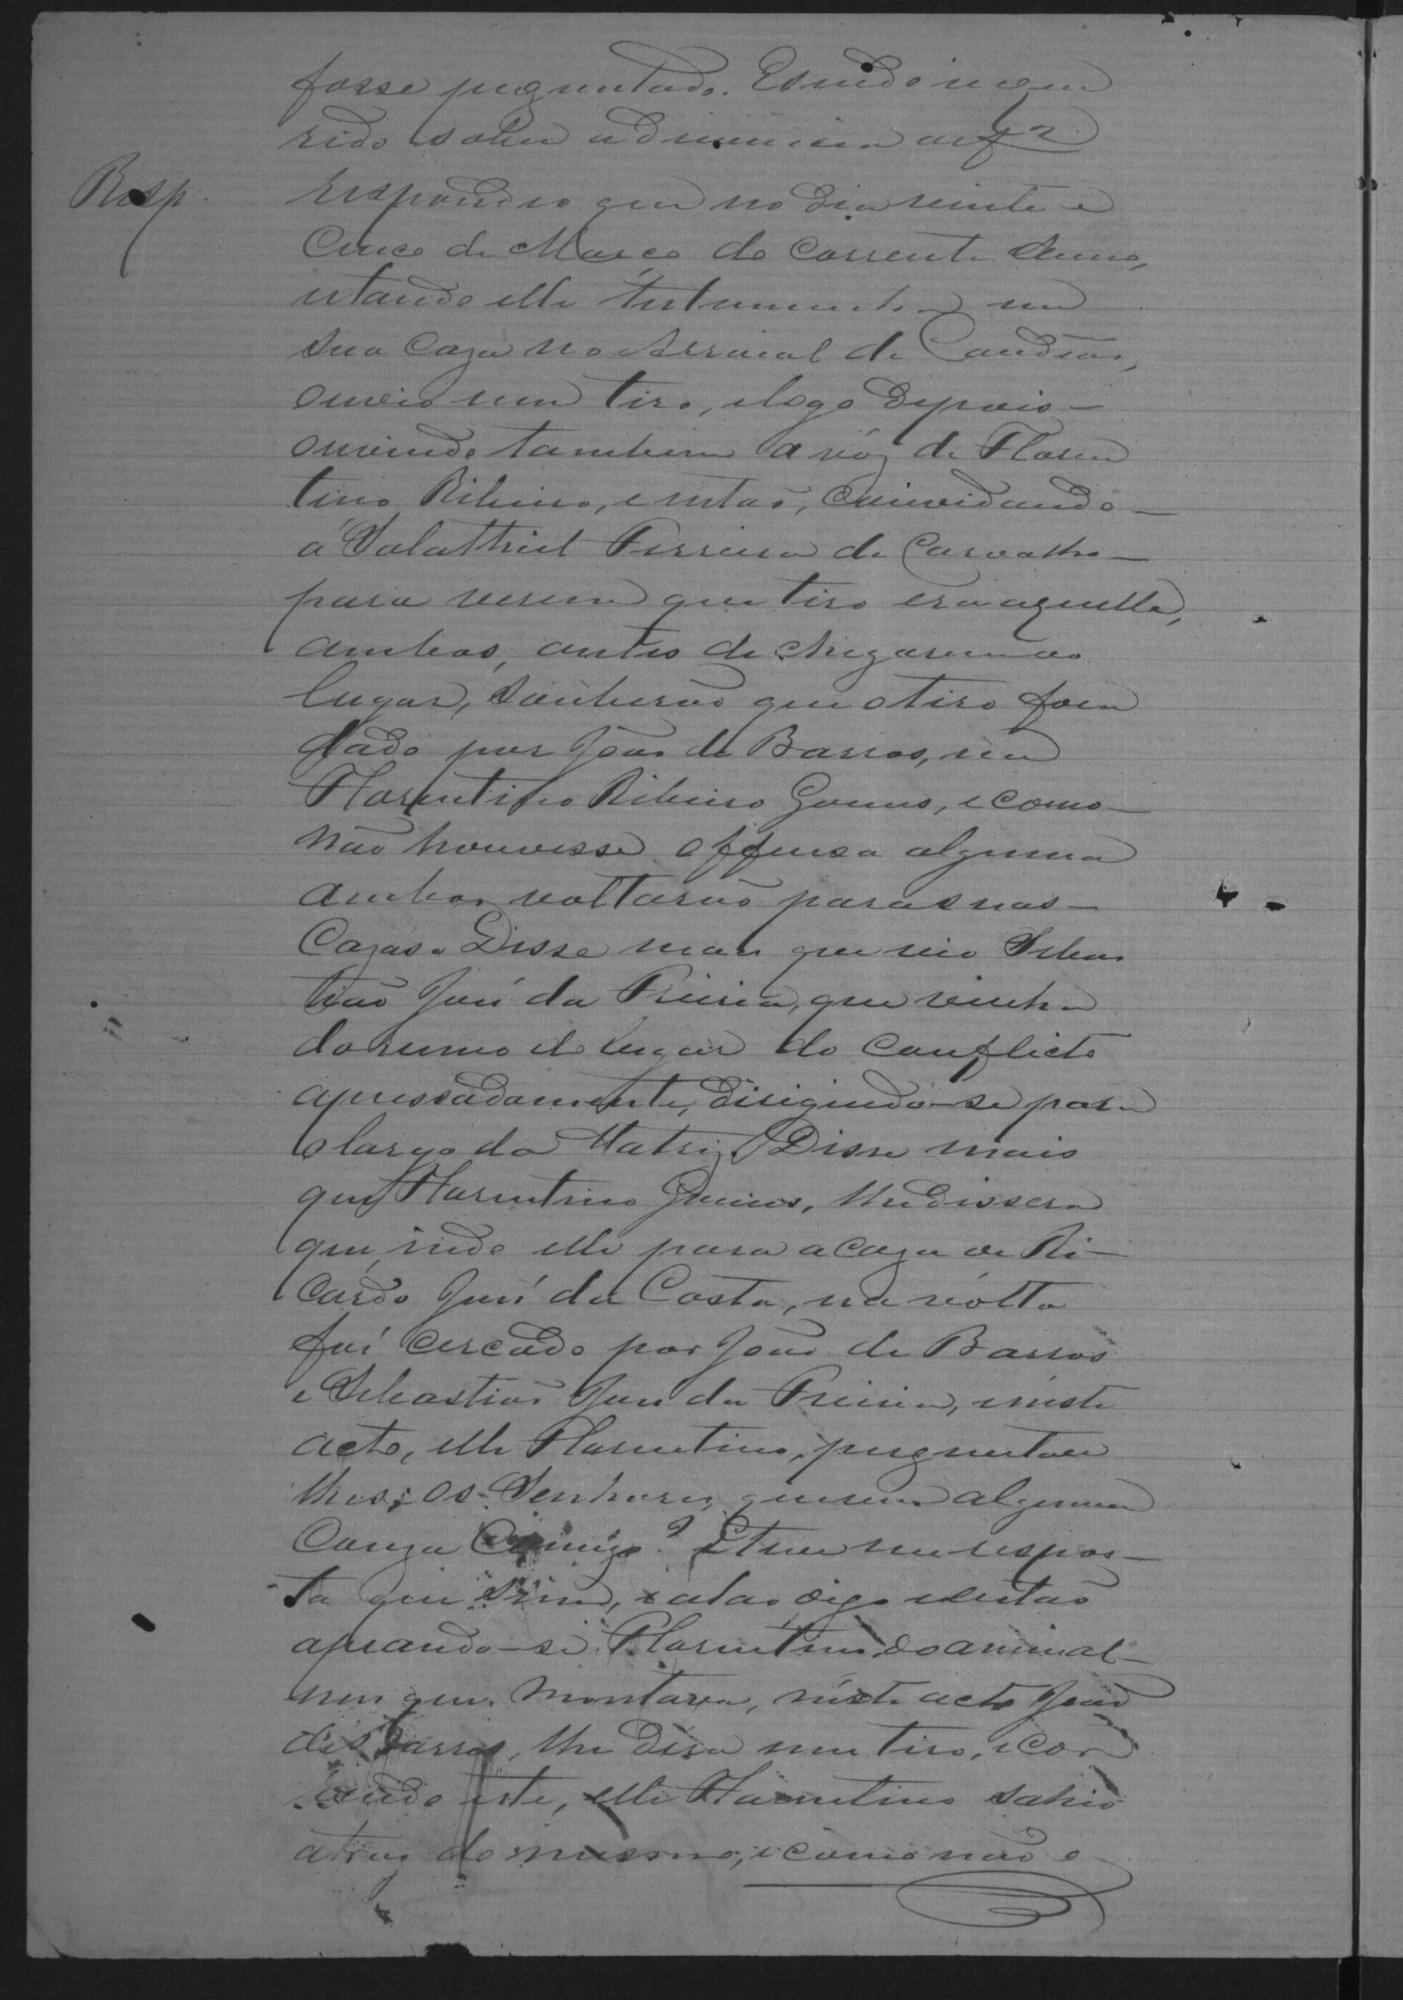 fosse perguntado. Esendo inque
rido sobre a denuncia de f 2
Resp. respondeo que no dia vinte e
Cinco de Março do corrente Anno,
estando elle testemunha em
sua Caza no Arraial de Candeas,
ouvio um tiro, e logo depois
ouvindo tambem a vóz de Floren
tino Ribeiro, e então, convidando
á Salathiel Ferreira de Carvalho
para verem que tiro era aquelle,
ambos, antes de chegarem ao
lugar, souberão que o tiro fora
dado por João de Barros, em
Florentino Ribeiro Gomes, e como
não houvesse offensa alguma
ambos voltarão para suas
Cazas. Disse mais que vio Sebas
tião José da, que vinha
do rumo do lugar do conflicto
apressadamente, dirigindo-se para
o largo da Matriz. Disse mais
que Florentino Gomes, lhe dissera
que, indo elle para a caza de Ri-
cardo José da Costa, na vólta
foi cercado por João de Barros
e Sebastião José da, e neste
acto, elle Florentino, perguntou
lhes; os Senhores querem alguma
Couza Comigo? E teve em respos-
ta que sim, e digo e então
apeando-se Florentino do animal
em que montava, néste acto João
de Barros, lhe dera um tiro, e cor
rendo este, elle Florentino sahio
atraz do mesmo, e como não o